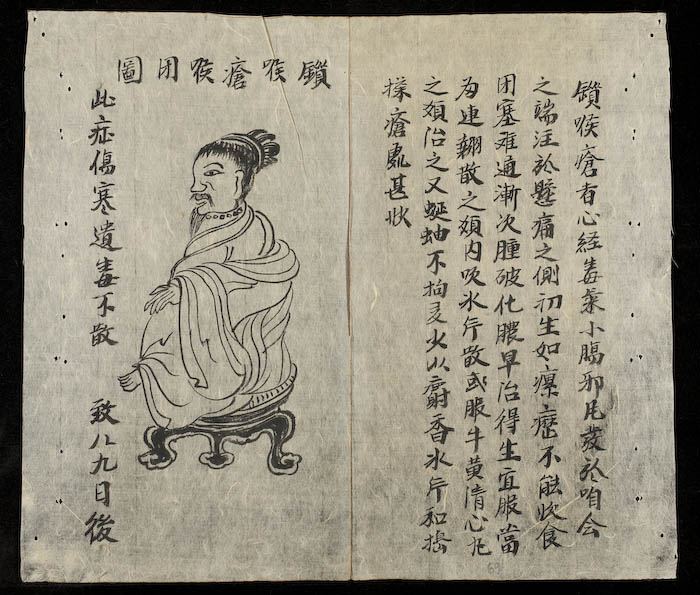 鎖喉瘡者心経毒氣小腸邪凡發於咱会
之端注於懸痛之側初生如瘰癧不能飲食
閉塞难通漸次腫破化膿早治得生宜服當
為連翹散之類内吹氷片散或服牛黄清心丸
之類治之又蜒蚰不拘多少以麝香氷片和搗
搽瘡處甚妙
鎖喉瘡喉閉圖
此症傷寒遺毒不散 致八九日後